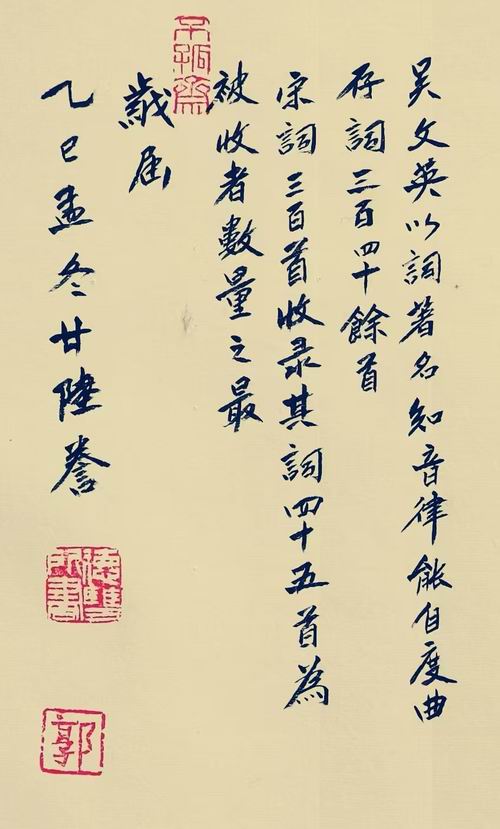 吴文英以詞著名知音律能自度曲
存詞三百四十餘首
宋詞三百首收录其詞四十五首為
被收者數量之最
歲届
乙巳孟冬廿陸誊
郭